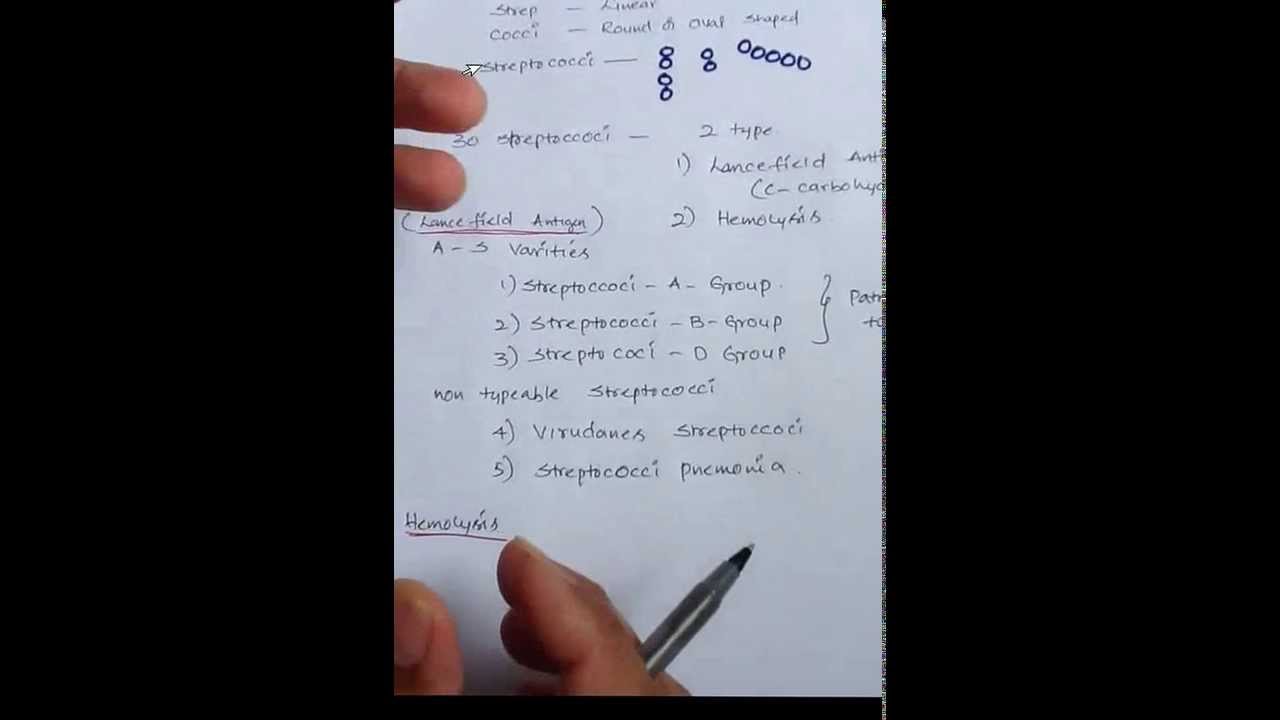 Strep — Linear
Cocci — Round or oval shaped
Streptococci —
30 Streptoccoci — 2 type
1) Lancefield Anti
(C- carbohyd
(Lancefield Antigen) 2) Hemolysis
A - S Varities
1) Streptoccoci - A - Group.
2) Streptococci - B - Group
3) Strepto coci - D Group
non typeable Streptococci
4) Virudanes Streptoccoci
5) Streptococci pnemonia.
Hemolysis